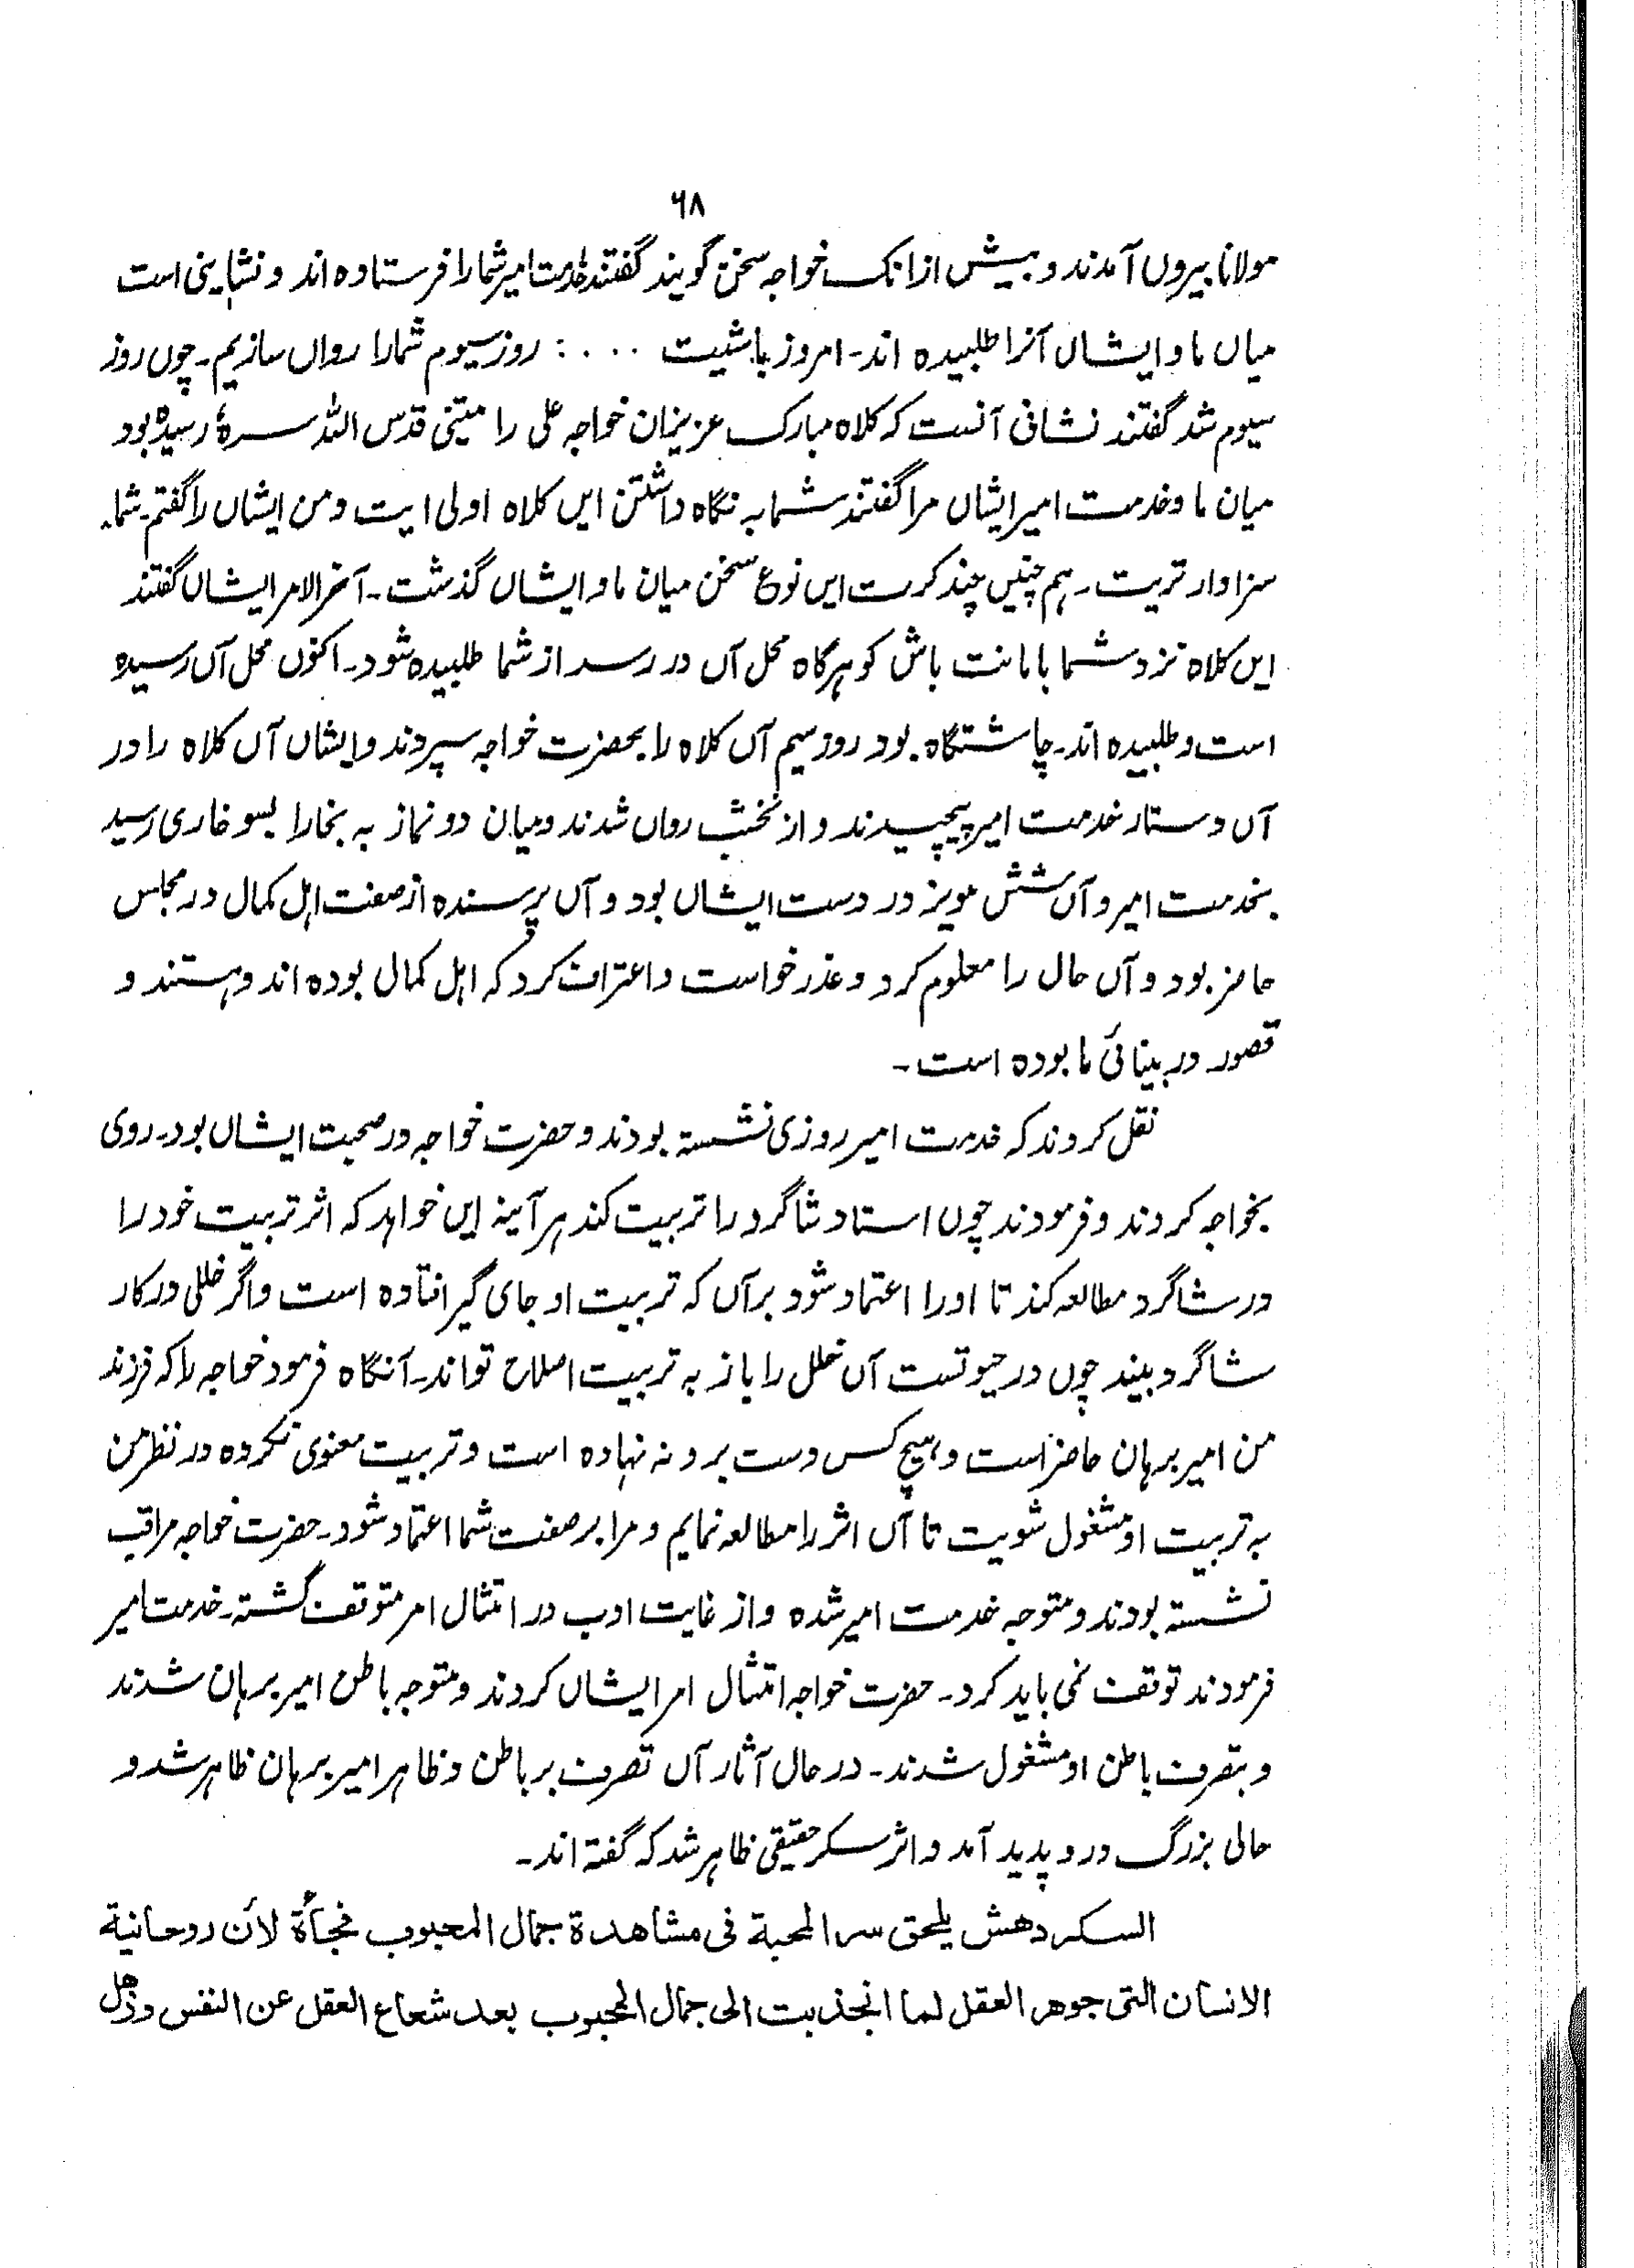 ۶۸
مولانا بیروں آمدند و بیش ازانک خواجہ سخن گویند گفتند خدمت امیر شما را فرستادہ اند و نشاینی است
میاں ما و ایشاں آنرا طلبیدہ اند۔ امروز باشیت ....: روز سیوم شمارا رواں سازیم۔ چوں روز
سیوم شد گفتند نشانی آنست کہ کلاہ مبارک عزیزان خواجہ علی را میتنی قدس اللہ سرہٗ رسیدہ بود
میان ما و خدمت امیر ایشاں مرا گفتند شما بہ نگاہ داشتن ایں کلاہ اولی ایت و من ایشاں را گفتم۔ شما
سزاوار تریت۔ ہم چنیں چند کرت ایں نوع سخن میان ما و ایشاں گذشت۔ آخر الامر ایشاں گفتند
ایں کلاہ نزد شما بامانت باش کو ہرگاہ محل آں در رسد از شما طلبیدہ شود۔ اکنوں محل آں رسیدہ
است و طلبیدہ اند۔ چاشتگاہ بود روز سیم آں کلاہ را بحضرت خواجہ سپردند و ایشاں آں کلاہ را در
آں دستار خدمت امیر پیچیدند و از نخشب رواں شدند و میان دو نماز بہ بخارا بسوخاری رسید
بخدمت امیر و آں شش مویز در دست ایشاں بود و آں پرسندہ از صفت اہل کمال در مجلس
حاضر بود و آں حال را معلوم کرد و عذر خواست و اعتراف کرد کہ اہل کمال بودہ اند و ہستند و
قصور در بینائی ما بودہ است۔
نقل کردند کہ خدمت امیر روزی نشستہ بودند و حضرت خواجہ در صحبت ایشاں بود۔ روی
بخواجہ کردند و فرمودند چوں استاد شاگرد را تربیت کند ہر آینہ ایں خواہد کہ اثر تربیت خود را
در شاگرد مطالعہ کند تا اورا اعتماد شود برآں کہ تربیت او جای گیر افتادہ است و اگر خللی در کار
شاگرد بیند چوں در حیوتست آں خلل را باز بہ تربیت اصلاح تواند۔ آنگاہ فرمود خواجہ را کہ فرزند
من امیر برہان حاضر است و ہیچ کس دست برو نہ نہادہ است و تربیت معنوی نکردہ در نظر من
بہ تربیت او مشغول شویت تا آں اثر را مطالعہ نمایم و مرا بر صفت شما اعتماد شود۔ حضرت خواجہ مراقب
نشستہ بودند و متوجہ خدمت امیر شدہ و از غایت ادب در امتثال امر متوقف گشتہ۔ خدمت امیر
فرمودند توقف نمی باید کرد۔ حضرت خواجہ امتثال امر ایشاں کردند و متوجہ باطن امیر برہان شدند
و بتصرف باطن او مشغول شدند۔ در حال آثار آں تصرف بر باطن و ظاہر امیر برہان ظاہر شد و
حالی بزرگ درو پدید آمد و اثر سکر حقیقی ظاہر شد کہ گفتہ اند۔
السکر دهش یلحق سر المحبة فی مشاهدة جمال المحبوب فجأة لأن روحانیة
الانسان التی جوهر العقل لما انجذبت الی جمال المحبوب بعد شعاع العقل عن النفس وذهل